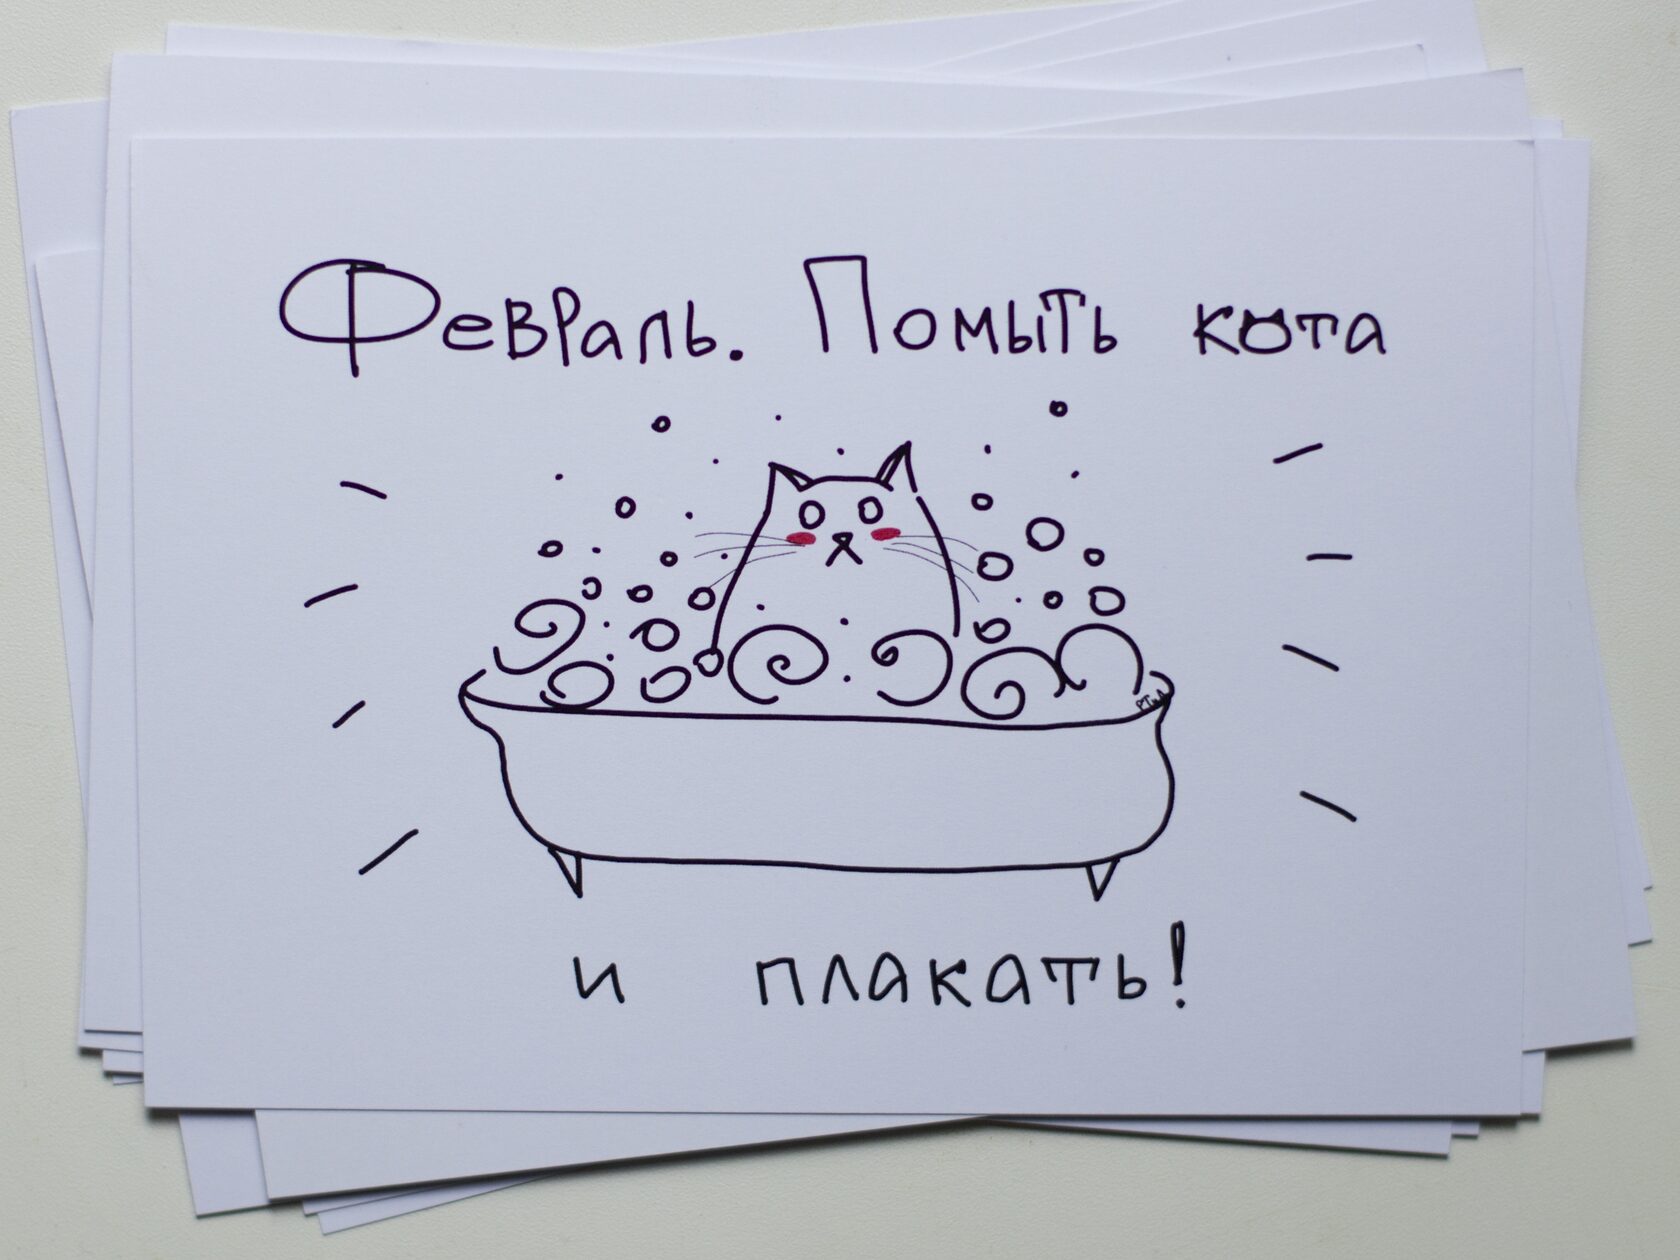 Февраль. Помыть кота
и плакать!